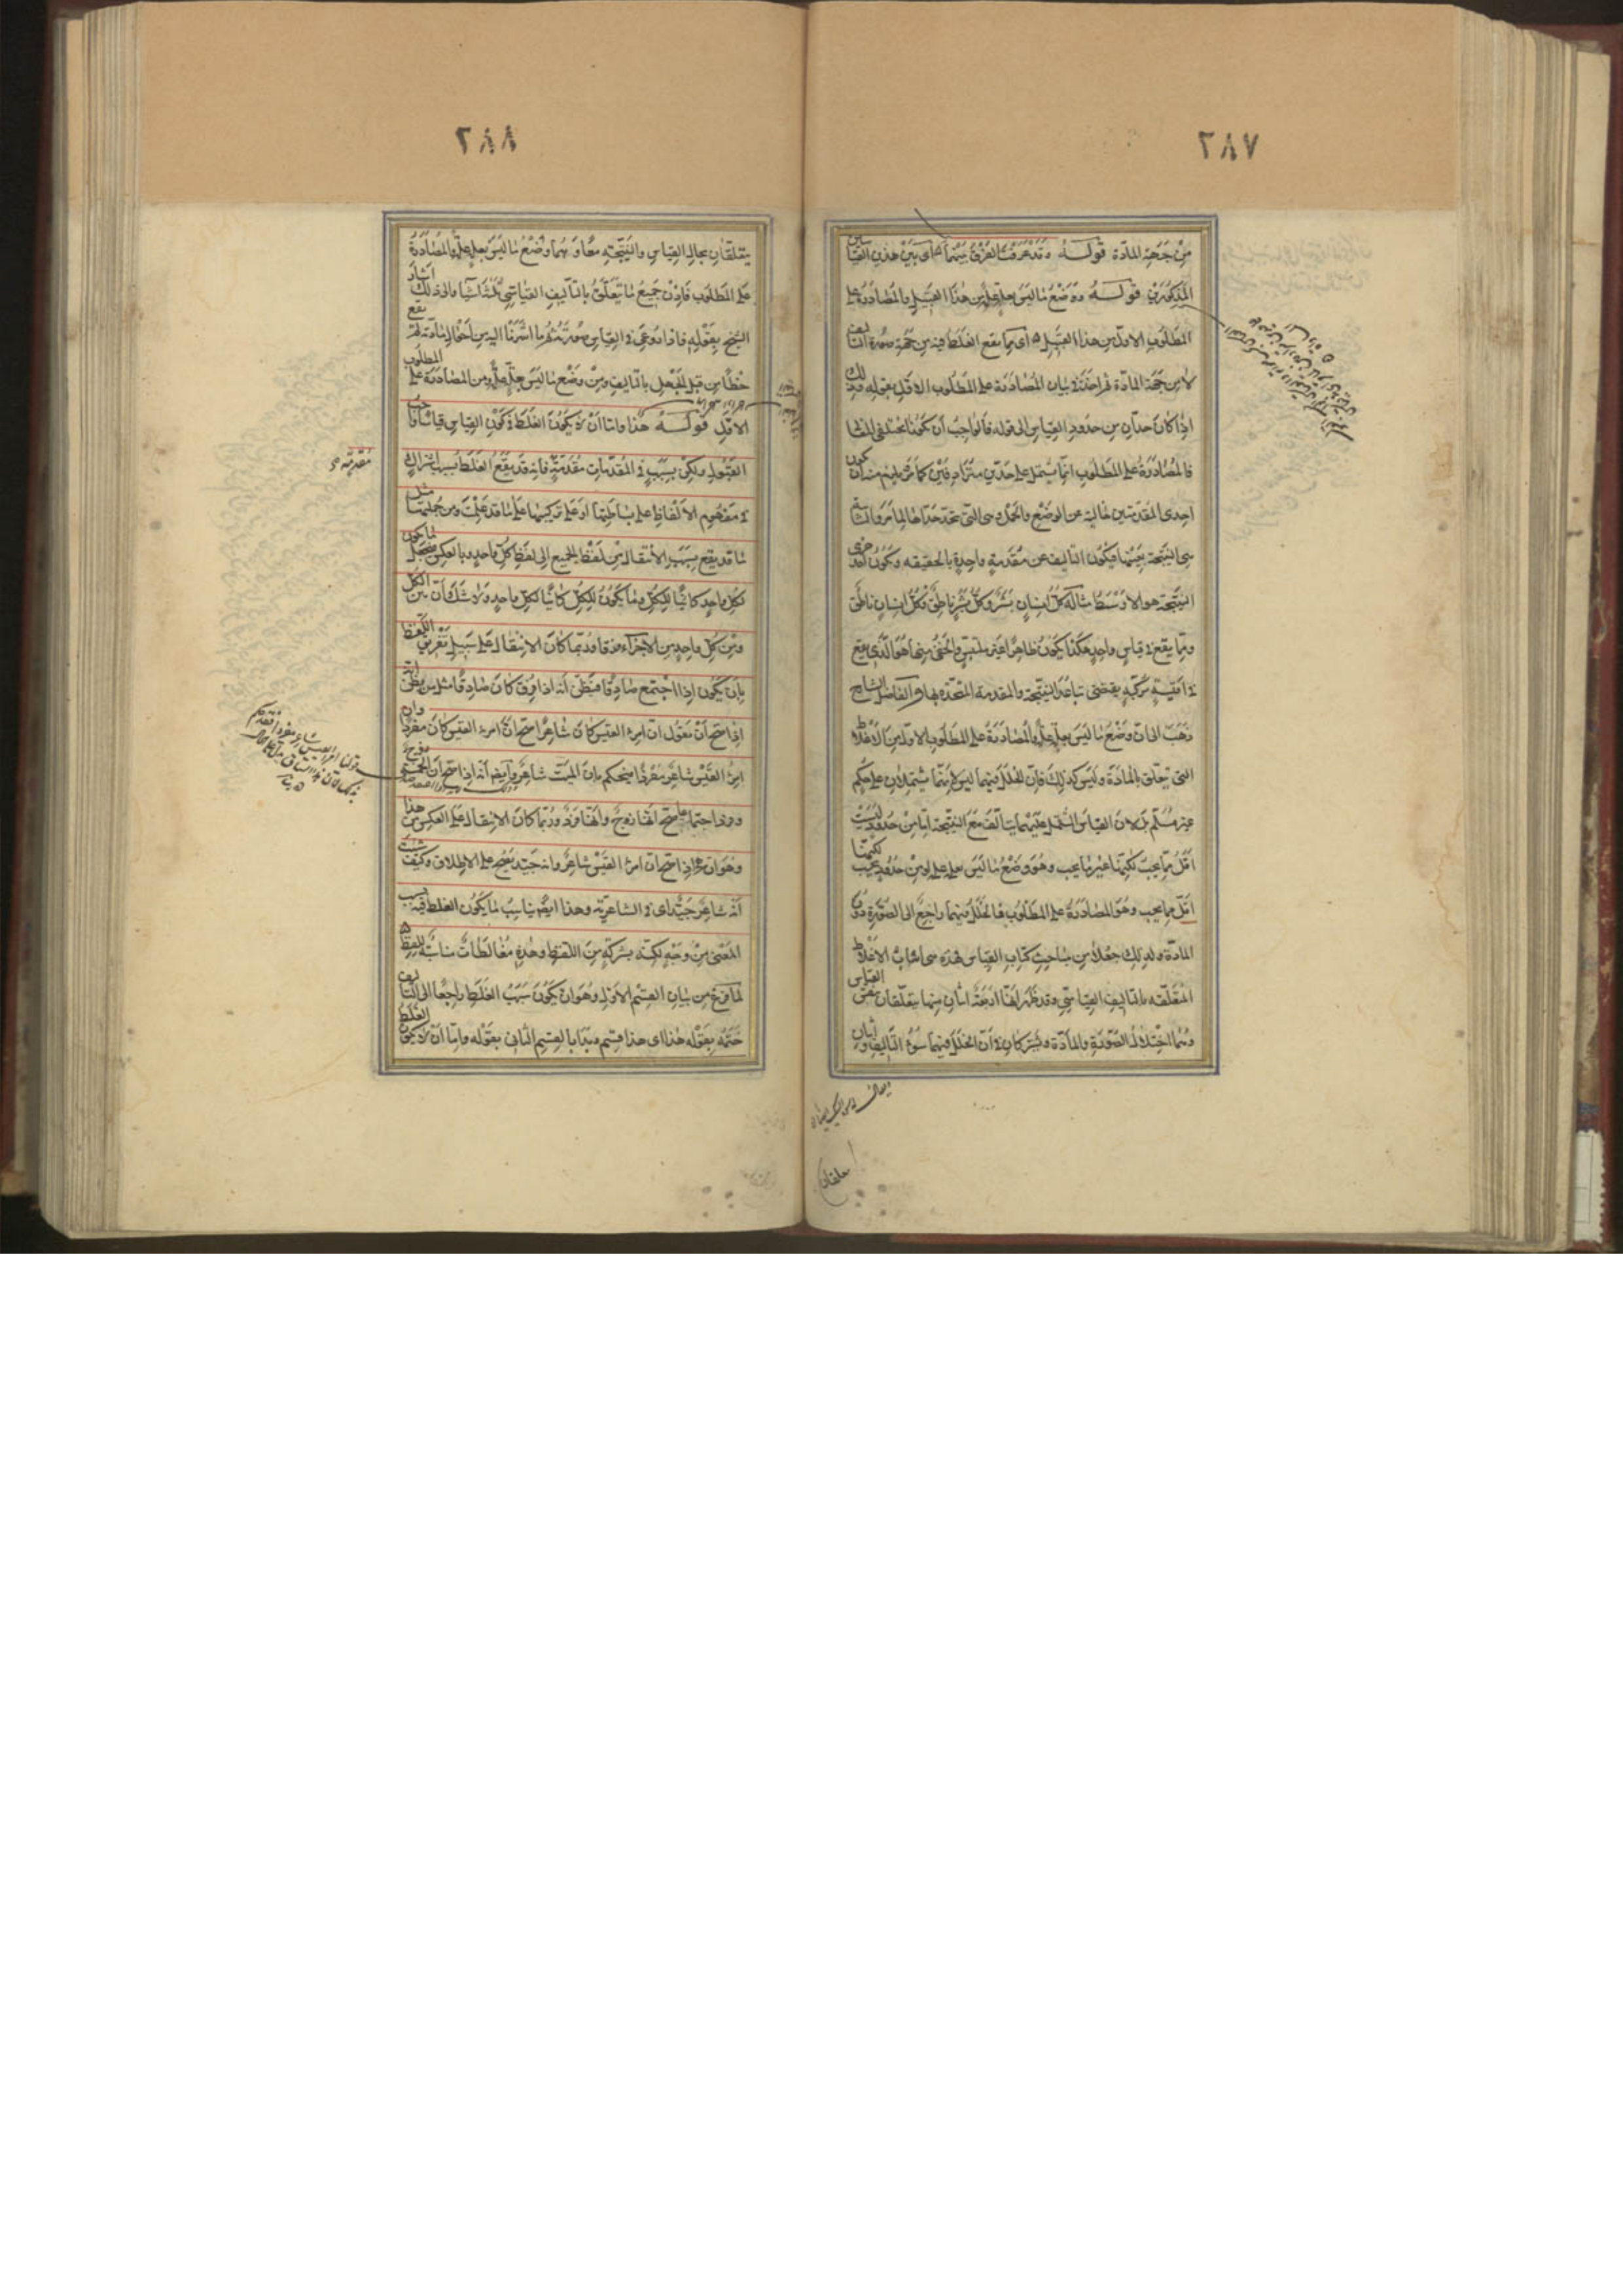 ٢٨٧
من جهة المادة قوله وقد عرفت الفرق بينهما اى بين هذين القياسين
المذكورين قوله ووضع ما ليس بعلة علة من هذا القبيل والمصادرة على
المطلوب الاول من هذا القبيل اى مما يقع الغلط فيه من جهة صورة التاليف
لا من جهة المادة ثم اخذ فى بيان المصادرة على المطلوب الاول بقوله وذلك
اذا كان حدان من حدود القياس الى قوله فالواجب ان
فالمصادرة على المطلوب انما يشتمل على حدين مترادفين كما مر يلزم منه ان يكون
احدى المقدمتين خالية عن الوضع والحمل وهى التى اتحد حداها لما مر والثانية
هى النتيجة بعينها فيكون التاليف عن مقدمة واحدة بالحقيقه ويكون احد حدى
النتيجة هو الاوسط مثاله كل انسان بشر وكل بشر ناطق فكل انسان ناطق
وما يقع فى قياس واحد هكذا يكون ظاهرا غير ملتبس والخفى منها هو الذى يقع
فى اقيسة مركبة يقتضى تباعد النتيجة والمقدمة المتحده بها والفاضل الشارح
ذهب الى ان وضع ما ليس بعلة علة والمصادرة على المطلوب الاول من الاغلاط
التى تتعلق بالمادة وليس كذلك فان الخلل فيهما ليس لانهما يشتملان على حكم
غير مسلم بل لان القياس المشتمل عليهما يتالف مع النتيجة اما من حدود ليست
اقل مما يجب لكنها غير ما يجب وهو وضع ما ليس بعلة علة او من حدود لكنها
اقل مما يجب وهو المصادرة على المطلوب فالخلل فيهما راجع الى الصورة دون
المادة ولذلك جعلا من مباحث كتاب القياس فهذه هى اسباب الاغلاط
المتعلقه بالتاليف القياسى وقد ظهر انها اربعة اثنان منها يتعلقان بنفس القياس
وهما اختلال الصورة والمادة ويشتركان فى ان الخلل فيهما سوء التاليف واثنان
٢٨٨
يتعلقان بحال القياس والنتيجة معا وهما وضع ما ليس بعلة علة والمصادرة
على المطلوب فاذن جميع ما يتعلق بالتاليف القياسى ثلثة اشيا والى ذلك اشار
الشيخ بقوله فاذا روعى فى القياس صورته ثم ما اشرنا اليه من احوال مادته لم يقع
خطأ من قبل الجهل بالتاليف ومن وضع ما ليس بعلة علة ومن المصادرة على المطلوب
الاول قوله هذا واما ان لا يكون الغلط فى كون القياس قياسا واجب
القبول ولكن بسبب فى المقدمات مقدمة فانه قد يقع الغلط بسبب اشتراك
فى مفهوم الالفاظ على بساطتها او على تركيبها على ما قد علمت ومن جملتها مثل
ما قد يقع بسبب الانتقال من لفظ الجميع الى لفظ كل واحد وبالعكس فيجعل ما يكون
لكل واحد كائنا للكل وما يكون للكل كائنا لكل واحد ولا شك فى ان بين الكل
وبين كل واحد من الاجزاء فرقا وربما كان الانتقال على سبيل تفريق اللفظ
بان يكون اذا اجتمع صادقا فيظن انه اذا فرق كان صادقا مثل من يظن انه
اذا صح ان نقول ان امرء القيس كان شاعرا صح ان امرء القيس كان مفردا وان
امرء القيس شاعر مفردا فيحكم بان الميت شاعر وايضا انه اذا صح ان الخمسة زوج
وفرد اجتماعا صح انها زوج وانها فرد وربما كان الانتقال على العكس من هذا
وهو ان اذا صح ان امرء القيس شاعر وانه جيد يصح على الاطلاق وكيف شئت
انه شاعر جيد اى فى الشاعرية وهذا ايضا يناسب ما يكون الغلط فيه بسبب
المعنى من وجه لكنه بشركة من اللفظ وهذه مغالطات مناسبة للفظ
لما فرغ من بيان القسم الاول وهو ان يكون سبب الغلط راجعا الى التاليف
ختمه بقوله هذا اى هذا قسم وبدا بالقسم الثانى بقوله واما ان لا يكون الغلط
مقدمة